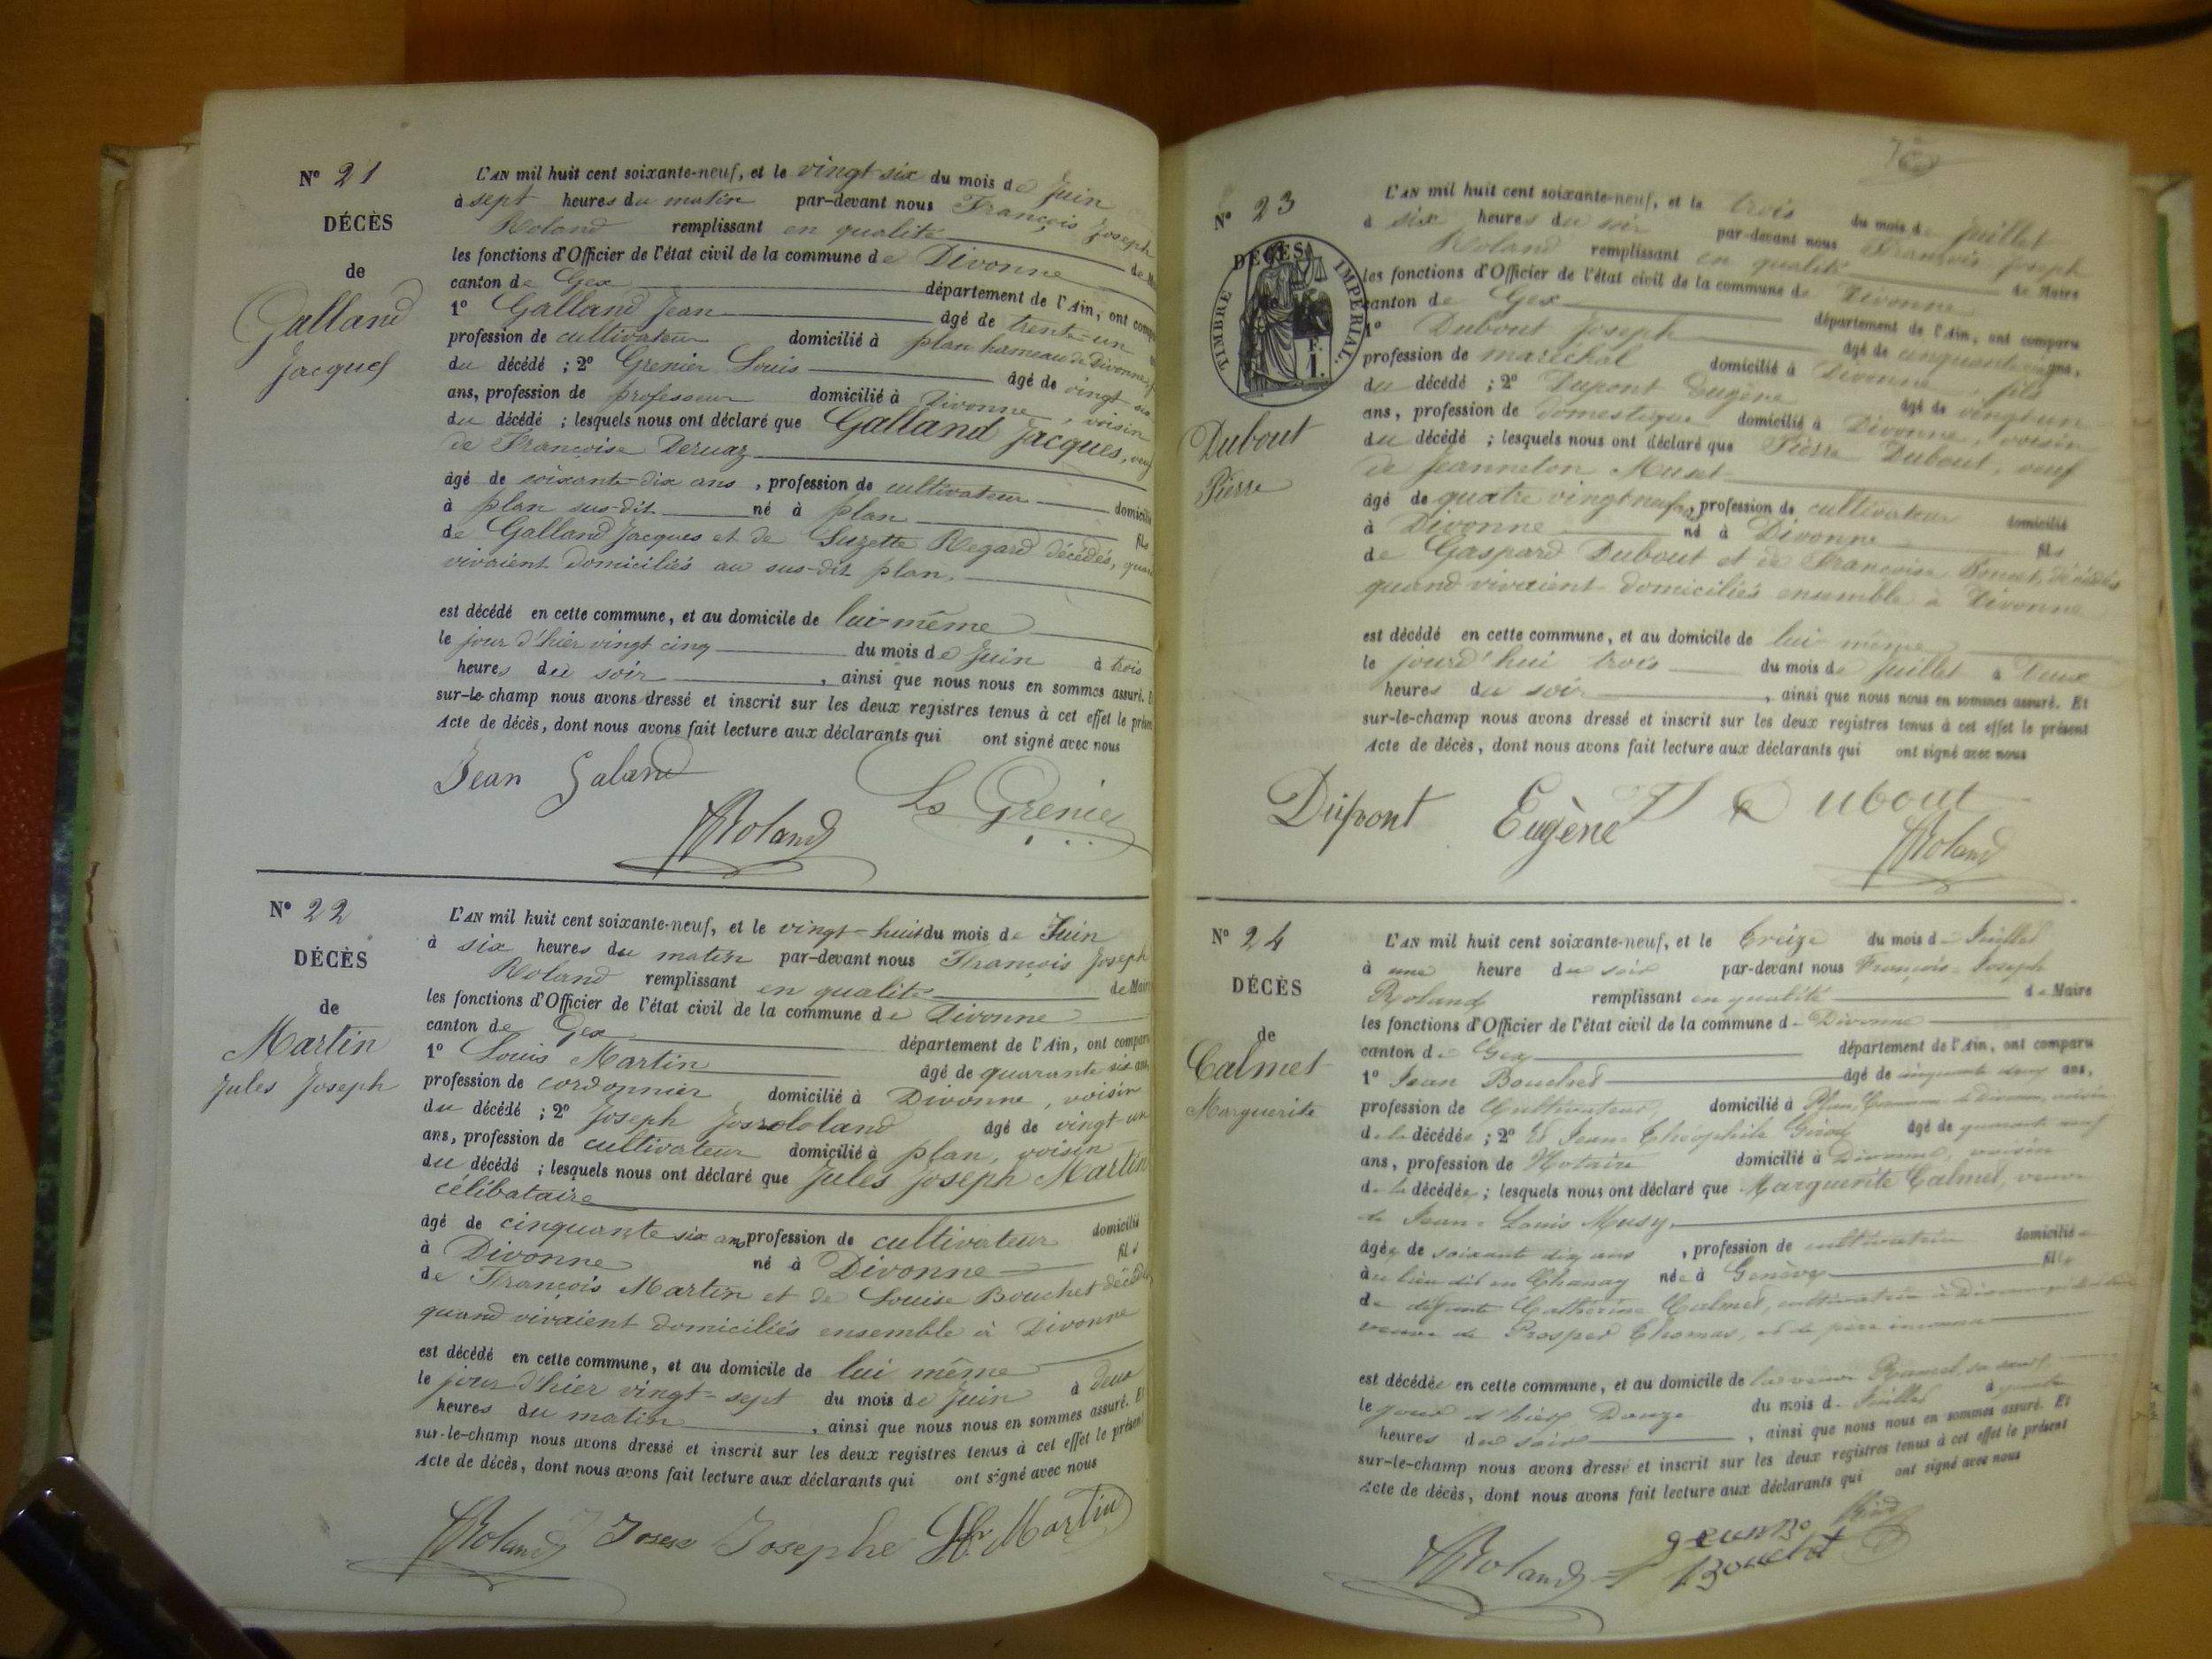 N° 21
DÉCÈS
de
Galland
Jacques
L'AN mil huit cent soixante-neuf, et le vingt-six du mois de Juin
à sept heures du matin par-devant nous François Joseph
Roland remplissant en qualité de M
les fonctions d'Officier de l'état civil de la commune de Divonne
canton de Gex département de l'Ain, ont comp
1° Galland Jean âgé de trente-un
profession de cultivateur domicilié à plan hameau de Divonne,
du décédé ; 2° Grenier Louis âgé de vingt six
ans, profession de professeur domicilié à Divonne, voisin
du décédé ; lesquels nous ont déclaré que Galland Jacques, veuf
de Françoise Dervaz
âgé de soixante-dix ans, profession de cultivateur domicilié
à plan sus-dit né à plan fils
de Galland Jacques et de Suzette Regard décédés, quand
vivaient domiciliés au sus-dit plan.
est décédé en cette commune, et au domicile de lui-même
le jour d'hier vingt cinq du mois de Juin à trois
heures du soir, ainsi que nous nous en sommes assuré. Et
sur-le-champ nous avons dressé et inscrit sur les deux registres tenus à cet effet le présent
Acte de décès, dont nous avons fait lecture aux déclarants qui ont signé avec nous
Jean Galand Ls Grenier
Roland
N° 22
DÉCÈS
de
Martin
Jules Joseph
L'AN mil huit cent soixante-neuf, et le vingt-huit du mois de Juin
à six heures du matin par-devant nous François Joseph
Roland remplissant en qualité de Maire
les fonctions d'Officier de l'état civil de la commune de Divonne
canton de Gex département de l'Ain, ont comparu
1° Louis Martin âgé de quarante-six ans,
profession de cordonnier domicilié à Divonne, voisin
du décédé ; 2° Joseph âgé de vingt-un
ans, profession de cultivateur domicilié à plan, voisin
du décédé ; lesquels nous ont déclaré que Jules Joseph Martin
célibataire
âgé de cinquante six ans, profession de cultivateur domicilié
à Divonne né à Divonne fils
de François Martin et de Louise Bouchet décédés
quand vivaient domiciliés ensemble à Divonne
est décédé en cette commune, et au domicile de lui même
le jour d'hier vingt-sept du mois de Juin à deux
heures du matin, ainsi que nous nous en sommes assuré. Et
sur-le-champ nous avons dressé et inscrit sur les deux registres tenus à cet effet le présent
Acte de décès, dont nous avons fait lecture aux déclarants qui ont signé avec nous
Roland Josephe Martin
N° 23
DÉCÈS
TIMBRE IMPÉRIAL
F.
1.
Dubout
Pierre
L'AN mil huit cent soixante-neuf, et le trois du mois de Juillet
à six heures du soir par-devant nous François Joseph
Roland remplissant en qualité de Maire
les fonctions d'Officier de l'état civil de la commune de Divonne
canton de Gex département de l'Ain, ont comparu
1° Dubout Joseph âgé de cinquante cinq ans,
profession de maréchal domicilié à Divonne fils
du décédé ; 2° Dupont Eugène âgé de vingt-un
ans, profession de domestique domicilié à Divonne, voisin
du décédé ; lesquels nous ont déclaré que Pierre Dubout, veuf
de Jeanneton Muset
âgé de quatre vingt neuf, profession de cultivateur domicilié
à Divonne né à Divonne fils
de Gaspard Dubout et de Françoise décédés
quand vivaient domiciliés ensemble à Divonne
est décédé en cette commune, et au domicile de lui-même
le jourd'hui trois du mois de Juillet à Deux
heures du soir, ainsi que nous nous en sommes assuré. Et
sur-le-champ nous avons dressé et inscrit sur les deux registres tenus à cet effet le présent
Acte de décès, dont nous avons fait lecture aux déclarants qui ont signé avec nous
Dupont Eugène Dubout
Roland
N° 24
DÉCÈS
de
Calmet
Marguerite
L'AN mil huit cent soixante-neuf, et le treize du mois de Juillet
à une heure du soir par-devant nous François-Joseph
Roland remplissant en qualité de Maire
les fonctions d'Officier de l'état civil de la commune de Divonne
canton de Gex département de l'Ain, ont comparu
1° Jean Bouchet âgé de cinquante deux ans,
profession de Cultivateur, domicilié à Plan, Commune de Divonne, voisin
de la décédée ; 2° Et Jean Théophile Girod âgé de quarante neuf
ans, profession de Notaire domicilié à Divonne, voisin
de la décédée ; lesquels nous ont déclaré que Marguerite Calmet, veuve
de Jean-Louis Musy,
âgée de soixante dix ans, profession de cultivatrice domiciliée
au lieu dit en Chanay née à Genève fille
de défunte Catherine Calmet, cultivatrice à Divonne,
veuve de Prosper Thomas, et de père inconnu
est décédée en cette commune, et au domicile de la veuve sa sœur
le jour d'hier Douze du mois de Juillet à quatre
heures du soir, ainsi que nous nous en sommes assuré. Et
sur-le-champ nous avons dressé et inscrit sur les deux registres tenus à cet effet le présent
Acte de décès, dont nous avons fait lecture aux déclarants qui ont signé avec nous
Roland Bouchet